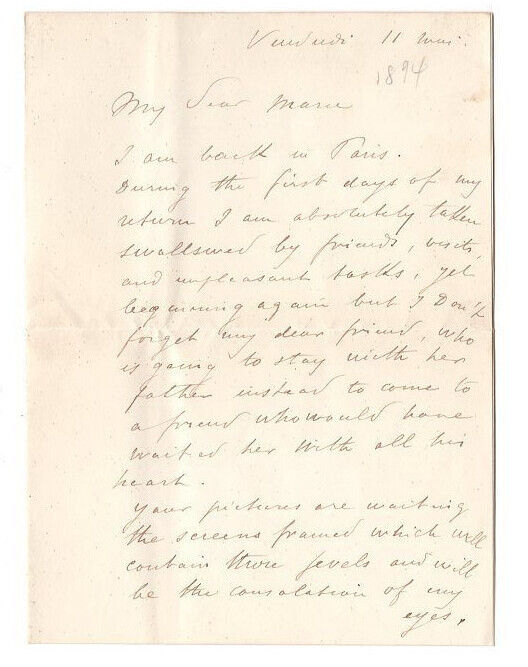 Vendredi 11 mai.
1894
My Dear Marie
I am back in Paris.
During the first days of my
return I am absolutely taken
swallowed by friends, visits,
and unpleasant tasks, yet
beginning again but I don't
forget my dear friend, who
is going to stay with her
father instead to come to
a friend who would have
waited her with all his
heart.
your pictures are waiting
the screens framed which will
contain those jevels and will
be the consolation of my
eyes.